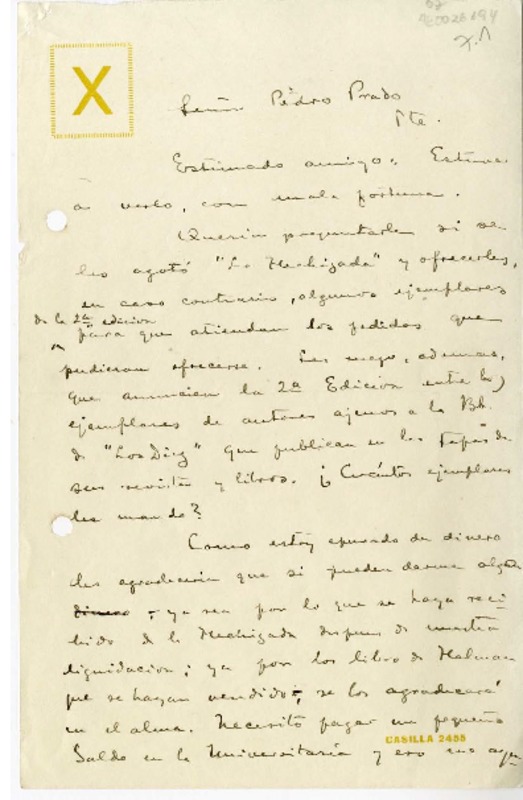 X
Señor Pedro Prado
Pte.
Estimado amigo: Estuve
a verlo, con mala fortuna.
Quería preguntarle si se
les agotó "La Hechizada" y ofrecerles,
en caso contrario, algunos ejemplares
de la 2ª edicion
para que atiendan los pedidos que
pudieran ofrecerse. Les ruego, ademas,
que anuncien la 2ª Edicion entre los
ejemplares de autores ajenos a la Bb.
de "Los Diez" que publican en las tapas de
sus revistas y libros. ¿Cuántos ejemplares
les mando?
Como estoy apurado de dinero
les agradeceria que si pueden darme algún
dinero, ya sea por lo que se haya reci
bido de la Hechizada despues de nuestra
liquidacion; ya por los libro de Halmar
que se hayan vendido, se los agradecerá
en el alma. Necesito pagar un pequeño
Saldo en la Universitaria y eso me
CASILLA 2455